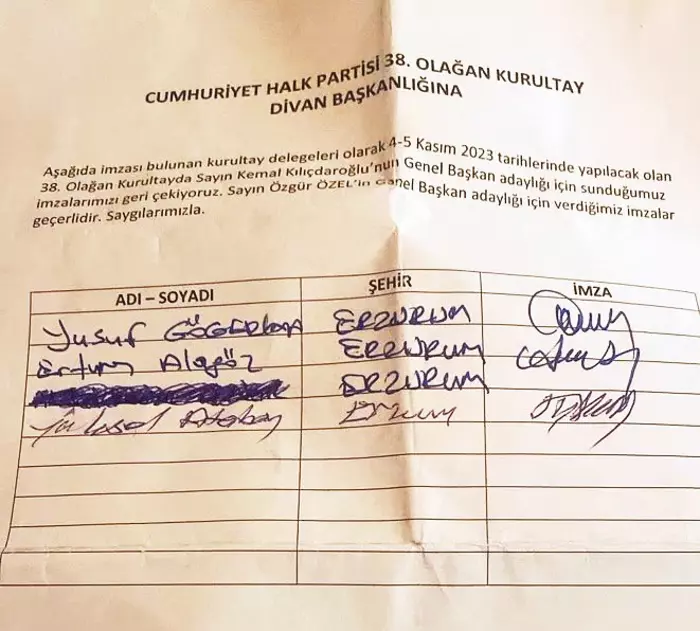 CUMHURİYET HALK PARTİSİ 38. OLAĞAN KURULTAY
DİVAN BAŞKANLIĞINA
Aşağıda imzası bulunan kurultay delegeleri olarak 4-5 Kasım 2023 tarihlerinde yapılacak olan
38. Olağan Kurultayda Sayın Kemal Kılıçdaroğlu'nun Genel Başkan adaylığı için sunduğumuz
imzalarımızı geri çekiyoruz. Sayın Özgür ÖZEL'in Genel Başkan adaylığı için verdiğimiz imzalar
geçerlidir. Saygılarımızla.
ADI – SOYADI ŞEHİR İMZA
Yusuf ERZURUM
Alagöz ERZURUM
ERZURUM
Yüksel Erzurum